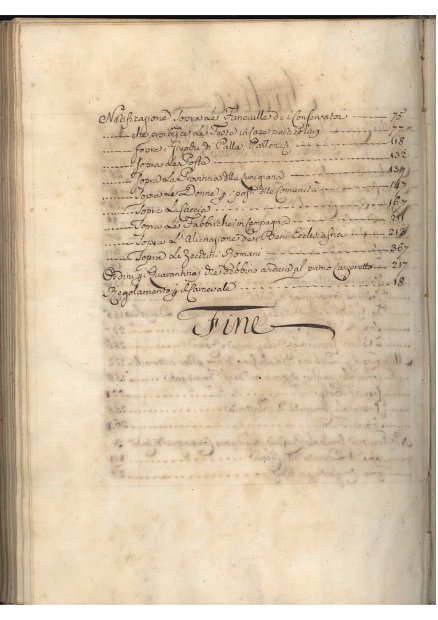 Notificazione Sopra Le Fanciulle de i Conservatori 75
che proibisce Le Feste in Case particolari 77
Sopra i Giuochi di Palla, e Pallone 118
Sopra La Posta 132
Sopra La Provincia della Lunigiana 139
Sopra Le Donne 147
Sopra La Caccia 167
Sopra Le Fabbriche in Campagna 211
Sopra L'Alienazione de i Beni Ecclesiastici 212
Sopra Li Zecchini Romani 367
Ordini Quarantina, che debbino andare al primo Lazeretto 217
Regolamento Il Carnevale 18
Fine